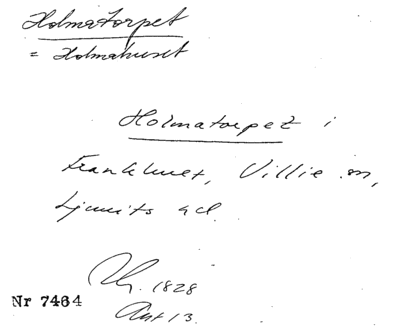 Holmatorpet
= Holmahuset
Holmatorpet i
Frankhuset, Villie sn,
Ljunits hd.
1828
Nr 7464
Akt 13.